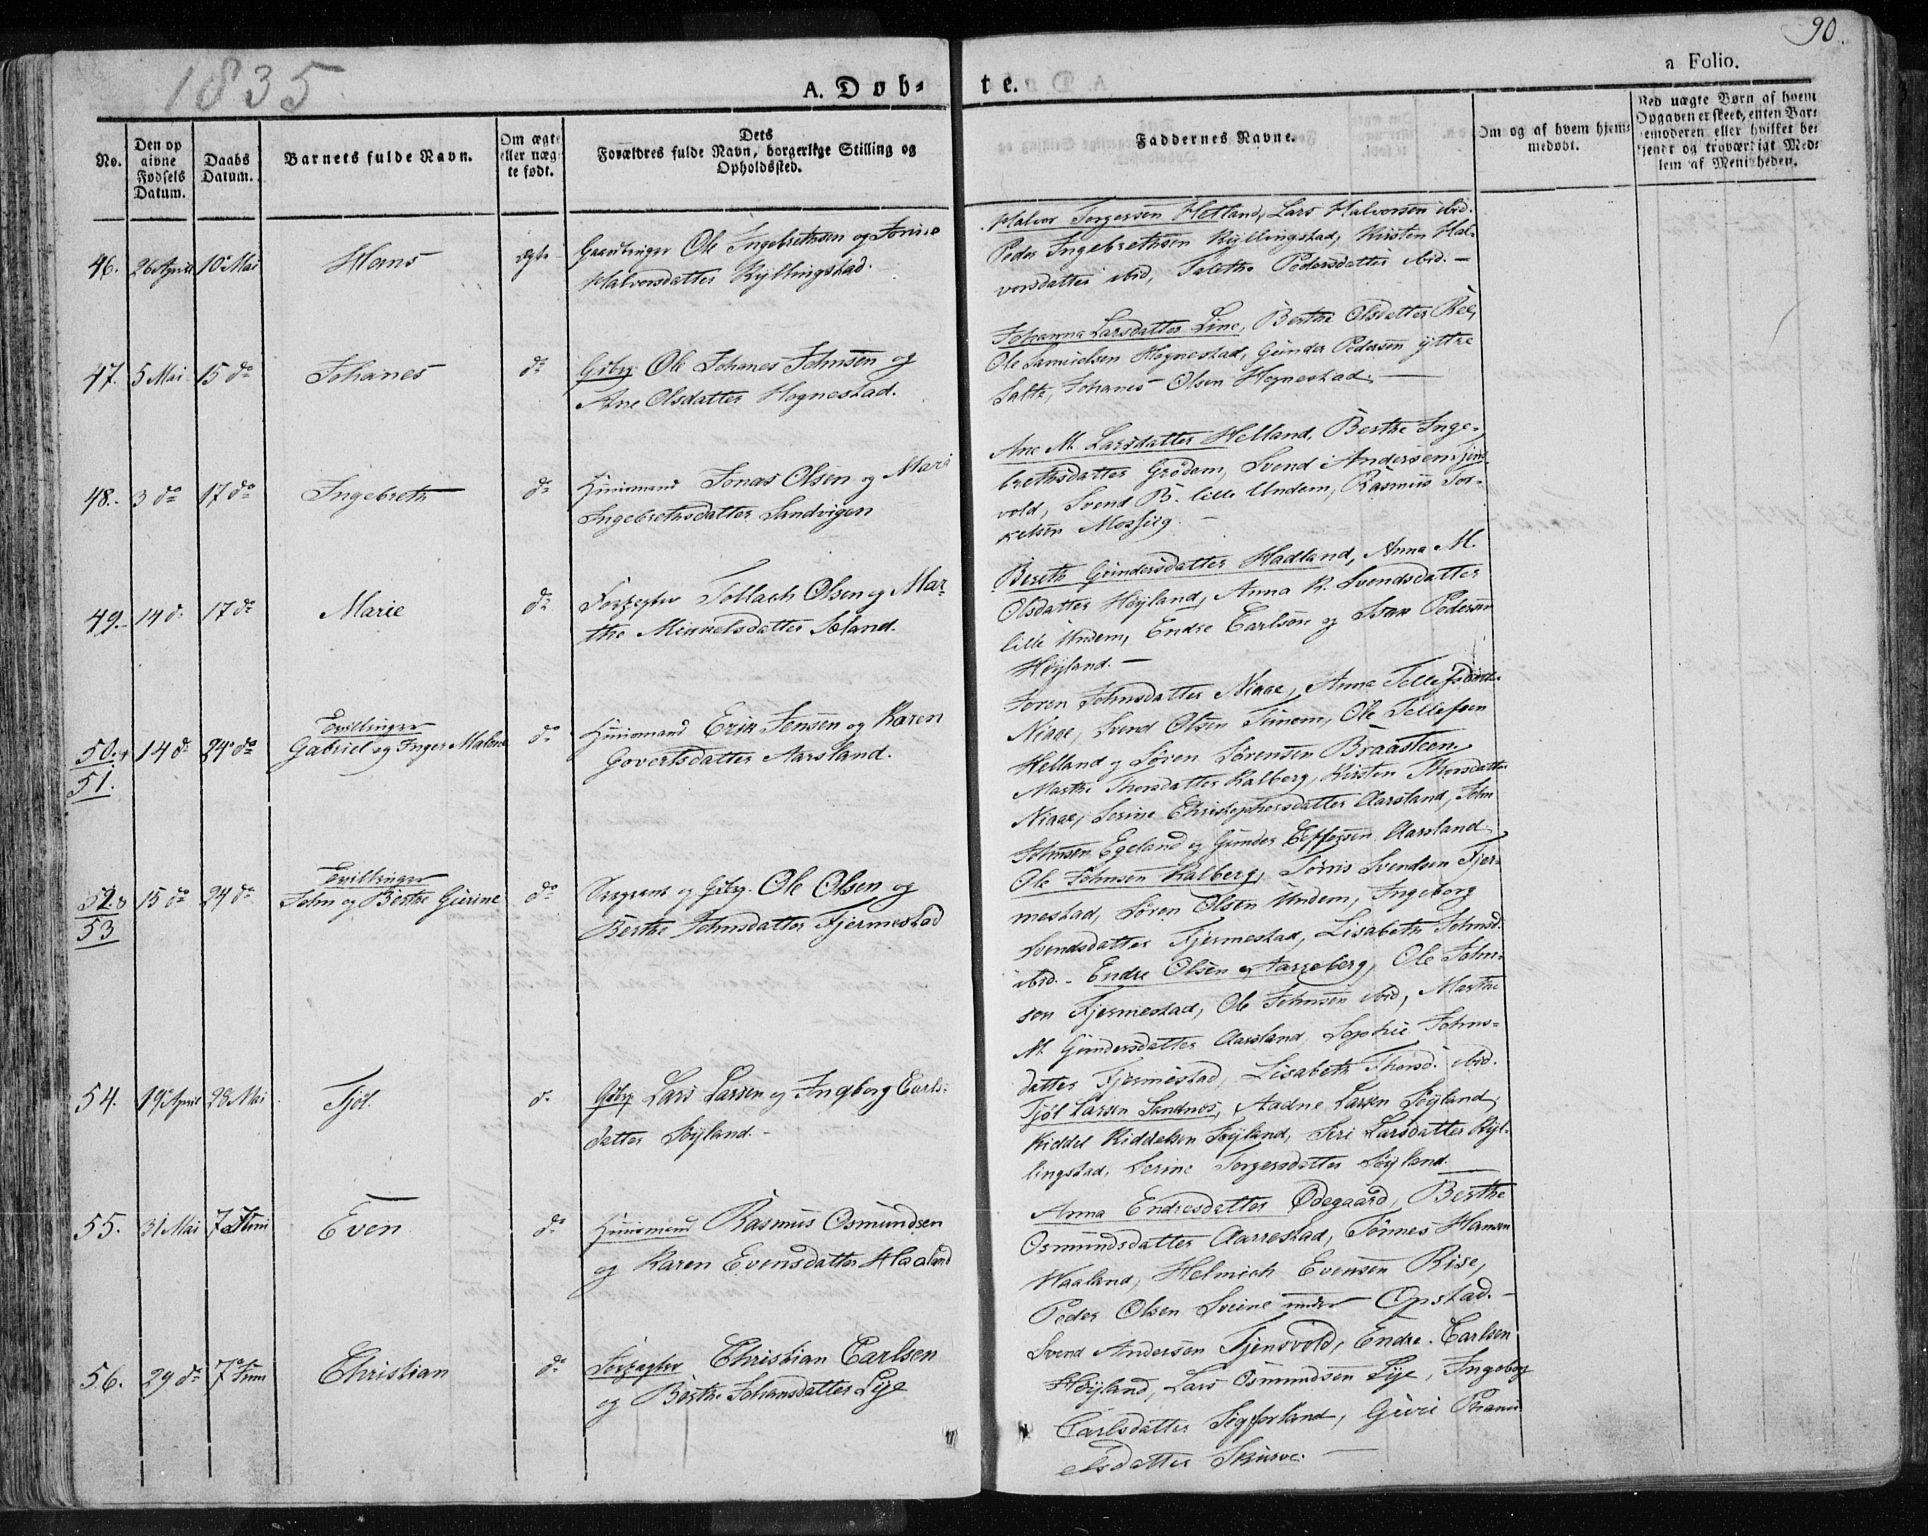 1835
90.
A. Døb-
te.
a Folio.
No.
Den op
givne
Fødsels
Datum.
Daabs
Datum.
Barnets fulde Navn.
Om ægte
eller uæg-
te født.
Dets
Forældres fulde Navn, borgerlige Stilling og
Opholdssted.
Faddernes Navne.
Om og af hvem hjem-
medøbt.
Ved uægte Børn af hvem
Opgaven er skeet, enten Bar-
nemoderen eller hvilket be-
kjendt og troværdigt Med-
lem af Menigheden.
46. 26 April 10 Mai Hans ægte
Ole Ingebrethsen og
Halvorsdatter Kyllingstad.
Halvor Torgersen Hetland, Lars Halvorsen ibid.
Peder Ingebrethsen Kyllingstad, Kirsten Hal-
vorsdatter ibid, Talette Pedersdatter ibid. —
47. 5 Mai 15 do Johanes do
Gbr Ole Johanes Johnsen og
Ane Olsdatter Hognestad.
Johanna Larsdatter Line, Berthe Olsdatter Ree,
Ole Samuelsen Hognestad, Gunder Pedersen yttre
Salte, Johanes Olsen Hognestad. —
48. 3 do 17 do Ingebreth do
Huusmand Jonas Olsen og Mari
Ingebrethsdatter Sandvigen
Ane M. Larsdatter Helland, Berthe Inge-
brethsdatter Grødem, Svend Andersen Tjens-
vold, Svend B. lille Undem, Rasmus Tor-
kelsen Mossiig. —
49. 14 do 17 do Marie do
Forpagter Tollach Olsen og Mar-
the Mikkelsdatter Æland.
Bereth Gundersdatter Hadland, Anna M.
Olsdatter Høyland, Anna R. Svendsdatter
lille Undem, Endre Carlsen og Sven Pedersen
Høyland. —
50. &
51.
14 do 24 do
Tvillinger
Gabriel og Inger Malene do
Huusmand Erik Jensen og Karen
Govertsdatter Aarsland.
Joren Johnsdatter Niaae, Anna Tellefsdatter
Niaae, Svend Olsen Tunem, Ole Tellefsen
Helland og Søren Sørensen Braasteen,
Marthe Thorsdatter Kalberg, Kirsten Thorsdatter
Niaae, Serine Christophersdatter Aarsland, John
Johnsen Egeland og Gunder Aarsland.
52 &
53
15 do 24 do
Tvillinger
John og Berthe Gurine do
og Gbr. Ole Olsen og
Berthe Johnsdatter Fjermestad
Ole Johnsen Kalberg, Tønis Svendsen Fjer-
mestad, Søren Olsen Undem, Ingeborg
Svendsdatter Fjermestad, Lisabeth Johnsd.
ibid. - Endre Olsen Aarreberg, Ole John-
sen Fjermestad, Ole Johnsen ibid, Marthe
M. Gundersdatter Aarsland, Sophie Johns-
datter Fjermestad, Lisabeth Thorsd. ibid.
54. 19 April 28 Mai Tjøl do
Gbr Lars Larsen og Ingborg Carls-
datter Søyland. -
Tjøl Larsen Sandnes, Aadne Larsen Søyland,
Kiddel Kiddelsen Søyland, Siri Larsdatter Kyl-
lingstad, Serine Torgersdatter Søyland. —
55. 31 Mai 7 Juni Even do
Huusmand Rasmus Osmundsen
og Karen Evensdatter Haaland
Anna Endresdatter Ødegaard, Berthe
Osmundsdatter Aarrestad, Tønnes Hansen
Haaland, Helmich Evensen Rise,
Peder Olsen Sveine under Opstad. —
56. 29 do 7 Juni Christian do
Forpagter Christian Carlsen
og Berthe Johansdatter Lye
Svend Andersen Tjensvold, Endre Carlsen
Høyland, Lars Osmundsen Lye, Ingeborg
Carlsdatter Guri
elsdatter Skurve. —